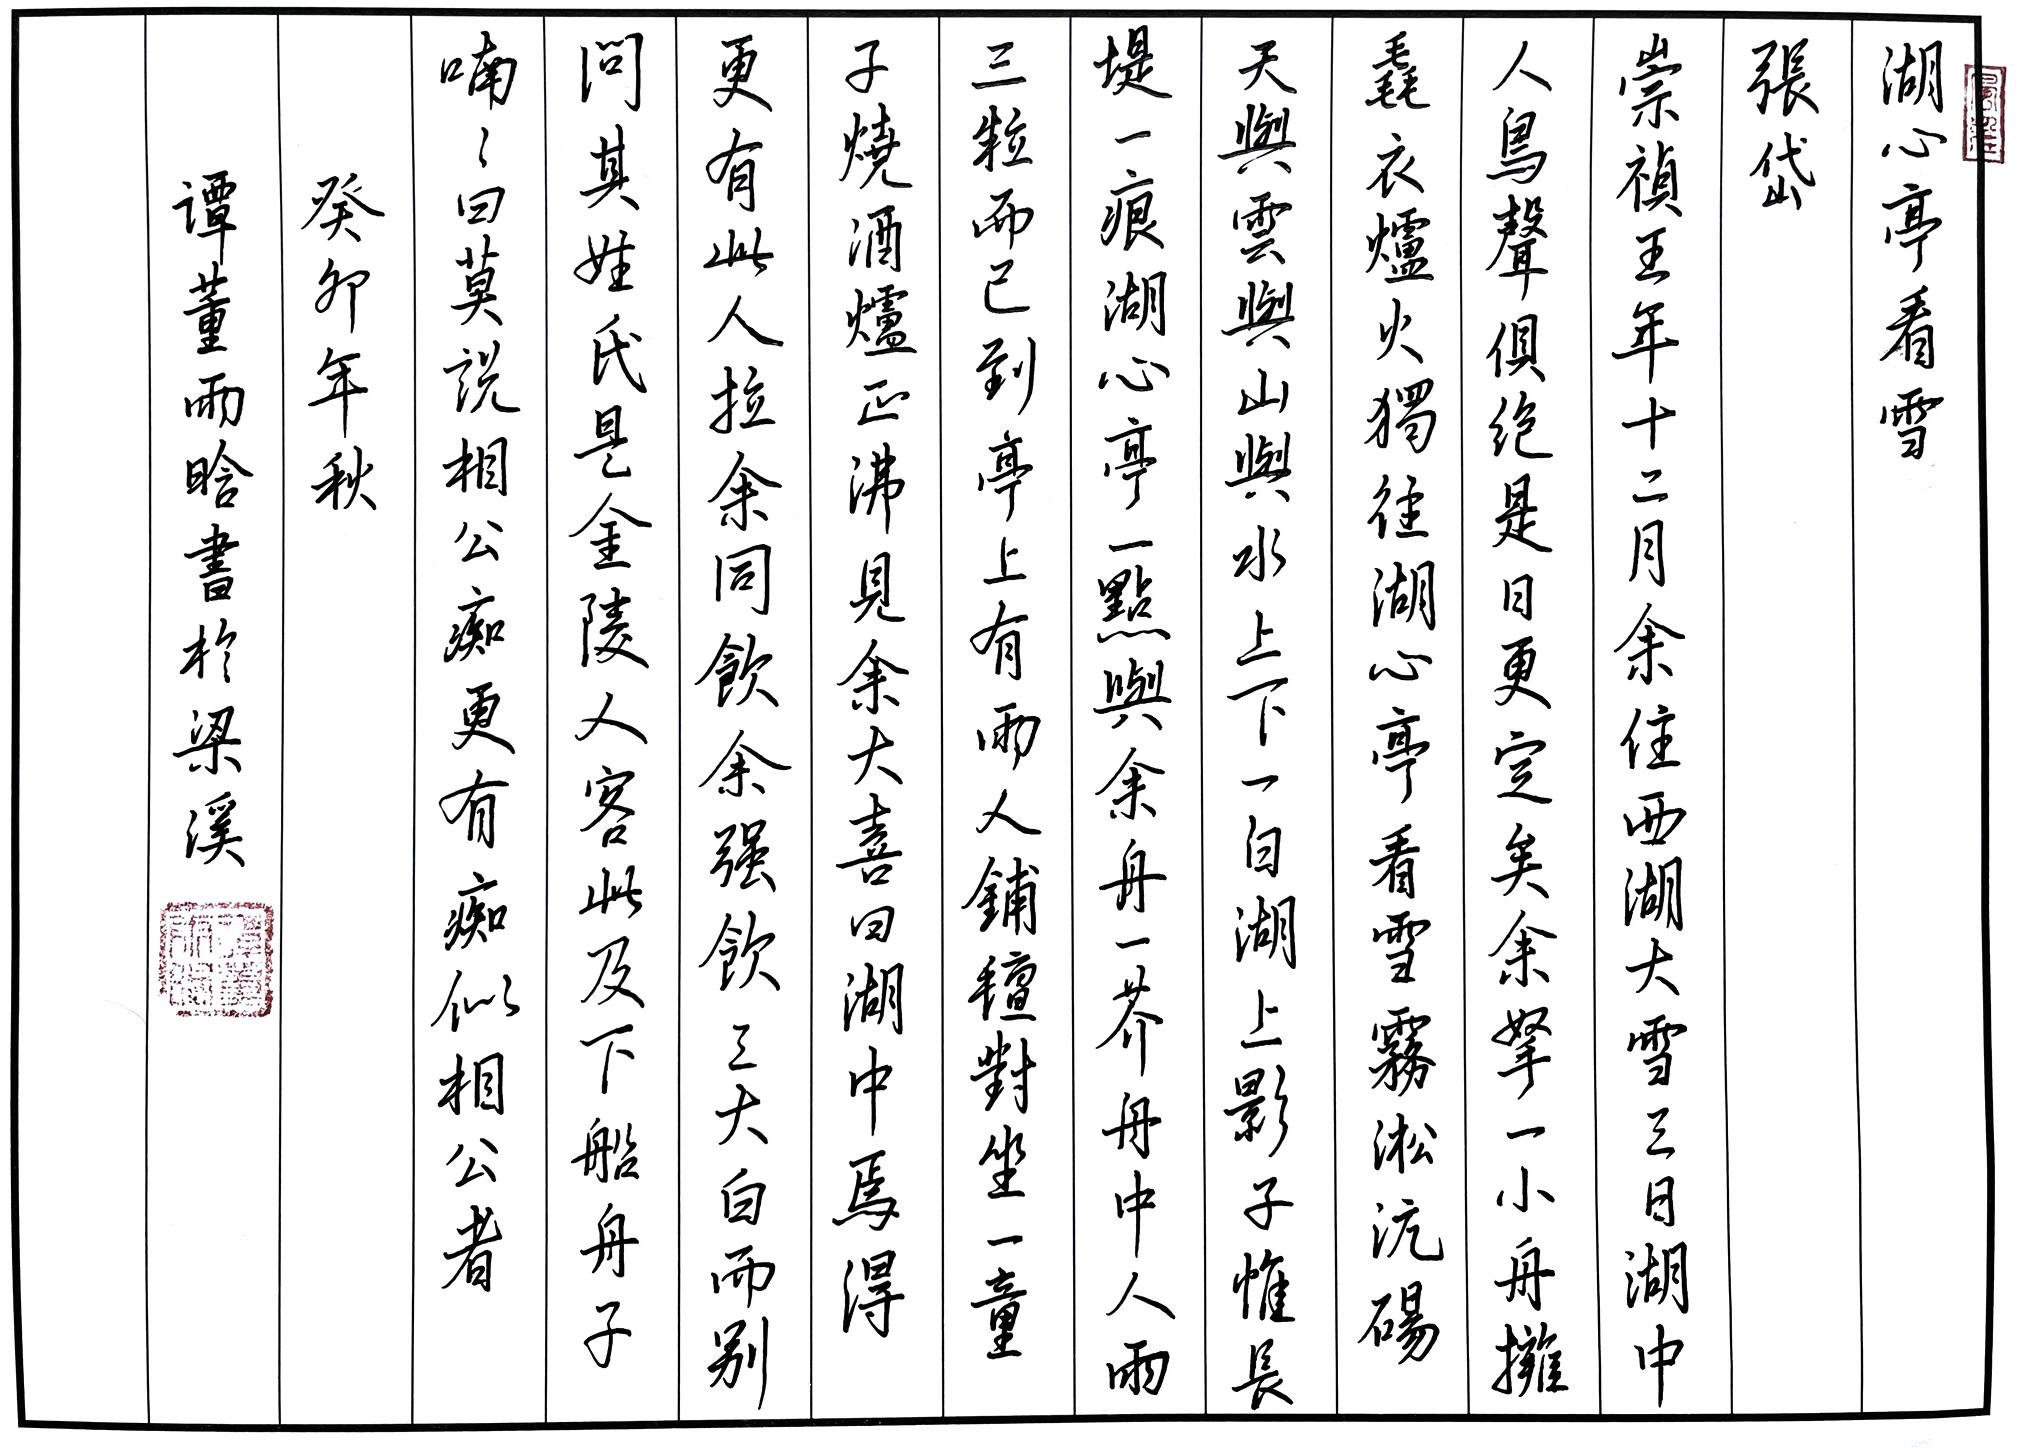 湖心亭看雪
張岱
崇禎五年十二月余住西湖大雪三日湖中
人鳥聲俱絶是日更定矣余拏一小舟擁
毳衣爐火獨往湖心亭看雪霧淞沆碭
天與雲與山與水上下一白湖上影子惟長
堤一痕湖心亭一點與余舟一芥舟中人兩
三粒而已到亭上有兩人鋪氊對坐一童
子燒酒爐正沸見余大喜曰湖中焉得
更有此人拉余同飲余强飲三大白而别
問其姓氏是金陵人客此及下船舟子
喃〻曰莫説相公痴更有痴似相公者
癸卯年秋
谭董雨晗書於梁溪